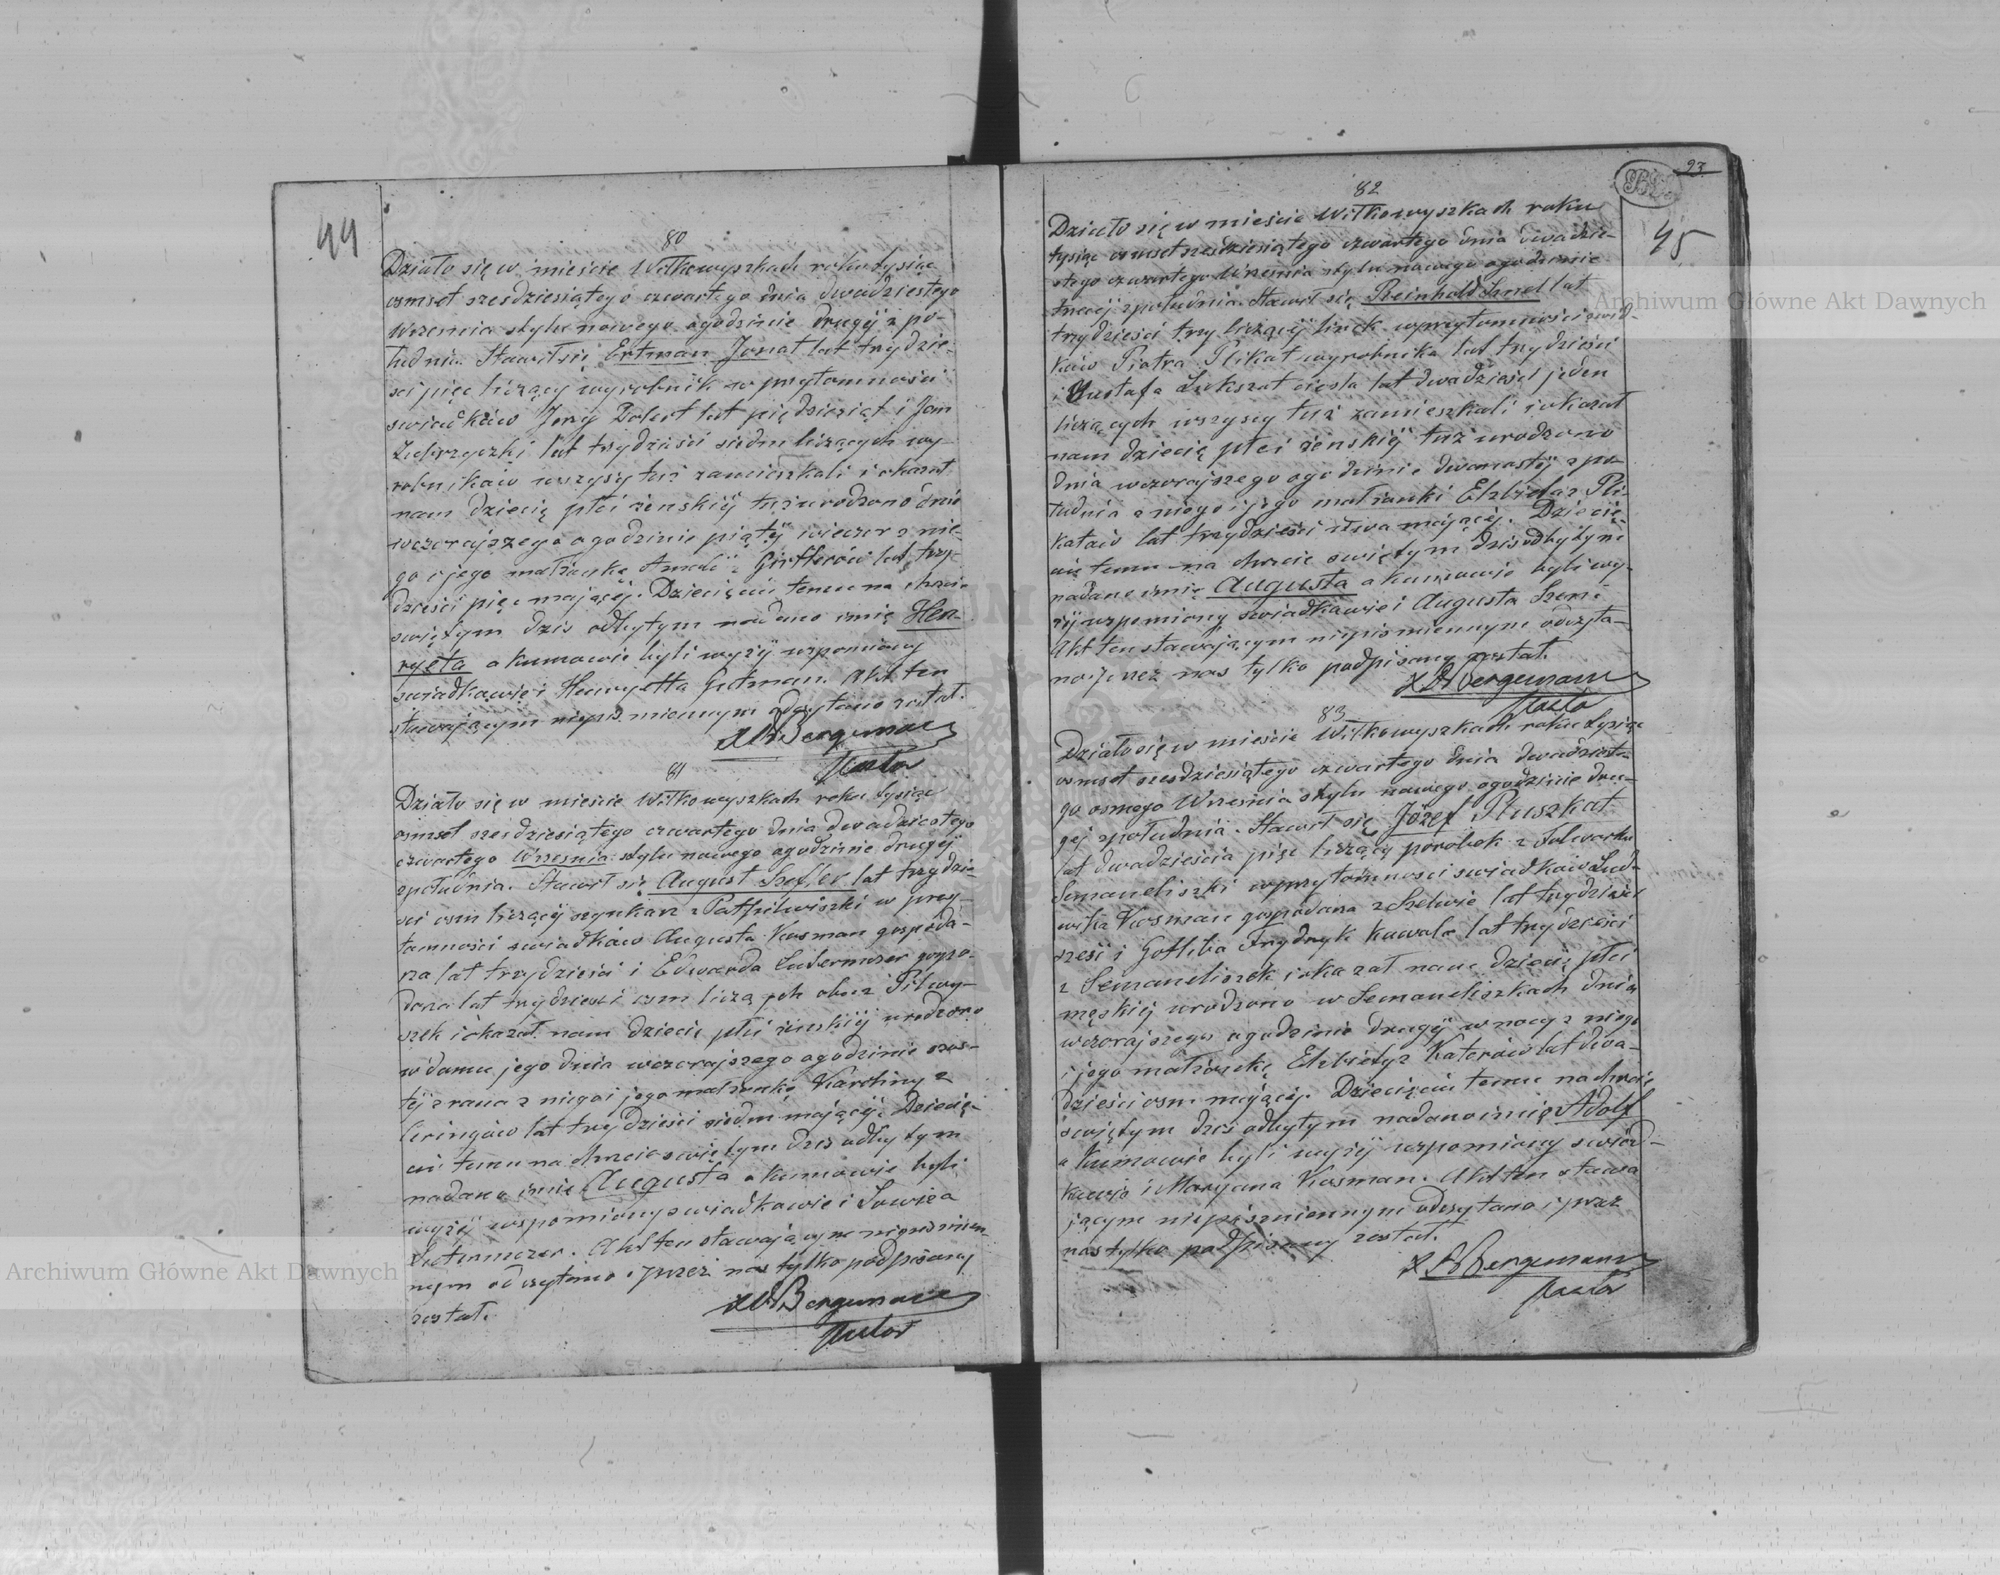 44
80
Działo się w mieście Wilkowyszkach roku tysiąc
osmset szesdziesiątego czwartego dnia dwudziestego
Wrzesnia stylu nowego ogodzinie drugij z po-
łudnia. Stawił się Ertman Jonat lat trzydzie-
sci pięc liczący wyrobnik w przytomnosci
swiadków Jerzy lat pięcdziesiąt i Jan
lat trzydziesci siedm liczących wy-
robników wszyscy tuż zamieszkali i okazał
nam dziecię płci żenskiij tuż urodzono dnia
wczorajszego ogodzinie piątij wieczor z nie-
go i jego małżonkę lat trzy-
dziesci pięc mającij. Dziecięciu temu na chrzcie
swiętym dzis odbytym nadano imię Hen-
ryeta a kumowie byli wyżij wspomniony
swiadkowie i Henryetta Gutman. Akt ten
stawającym niepismiennym odczytano został.
Bergemann
Pastor
81
Działo się w mieście Wilkowyszkach roku tysiąc
osmset szesdziesiątego czwartego dnia dwudziestego
czwartego Wrzesnia stylu nowego ogodzinie drugij
zpołudnia. Stawił się August Szefler lat trzydzie-
sci osm liczący szynkarz z w przy-
tomności swiadków Augusta Kosman gospoda-
rza lat trzydziesci i Edwarda gospo-
darza lat trzydziesci osm liczących obu z Pilwy-
szek i okazał nam dziecię płci żenskij urodzono
w domu jego dnia wczorajszego ogodzinie szos-
tij zrana z niego i jego małżonkę Karoliny z
lat trzydziesci siedm mającij. Dziecię-
ciu temu na chrzcie swiętym dzis odbytym
nadano imię Augusta a kumowie byli
wyżij wspomniony swiadkowie i Lowiza
Akt ten stawającym niepismien-
nym odczytano i przez nas tylko podpisany
został.
Bergemann
Pastor
23
45
82
Działo się w mieście Wilkowyszkach roku
tysiąc osmset szesdziesiątego czwartego dnia dwudzie-
stego czwartego Wrzesnia stylu nowego ogodzinie
trzecij zpołudnia. Stawił się Reinhold Sznel lat
trzydziesci trzy liczący w przytomności swiad-
ków Piotra Plikat wyrobnika lat trzydziesci
i Gustafa Lukszat ciesla lat dwadziescia jeden
liczących wszyscy tuż zamieszkali i okazał
nam dziecię płci żenskij tuż urodzono
dnia wczorajszego ogodzinie dwonastij zpo-
łudnia z niego i jego małżonki Elzbieta z Pli-
katów lat trzydziesci dwa mającij. Dziecię-
ciu temu na chrzcie swiętym dzis odbytym
nadano imię Augusta a kumowie byli wy-
żij wspomniony swiadkowie i Augusta
Akt ten stawającym niepismiennym odczyta-
no i przez nas tylko podpisany został.
Bergemann
Pastor
83
Działo się w mieście Wilkowyszkach roku tysiąc
osmset szesdziesiątego czwartego dnia dwudzieste-
go osmego Wrzesnia stylu nowego ogodzinie dru-
gij zpołudnia. Stawił się Józef Pluszkat
lat dwadziescia pięc liczący porobek z Folwarku
Semaneliszki w przytomnosci swiadków Lud-
wika Kosman gospodarza z Szelwie lat trzydziesci
szesc i Gotliba Frydryk kowala lat trzydziesci
z Semaneliszek i okazał nam dziecię płci
męskij urodzono w Semaneliszkach dnia
wczorajszego ogodzinie drugij w nocy z niego
i jego małżonkę Elzbiety z Katerów lat dwa-
dziesci osm mającij. Dziecięciu temu na chrzcie
swiętym dzis odbytym nadano imię Adolf
a kumowie byli wyżij wspomniony swiad-
kowie i Maryana Kosman. Akt ten stawa
jącym niepismiennym odczytano i przez
nas tylko podpisany został.
Bergemann
Pastor
Archiwum Główne Akt Dawnych
Archiwum Główne Akt Dawnych